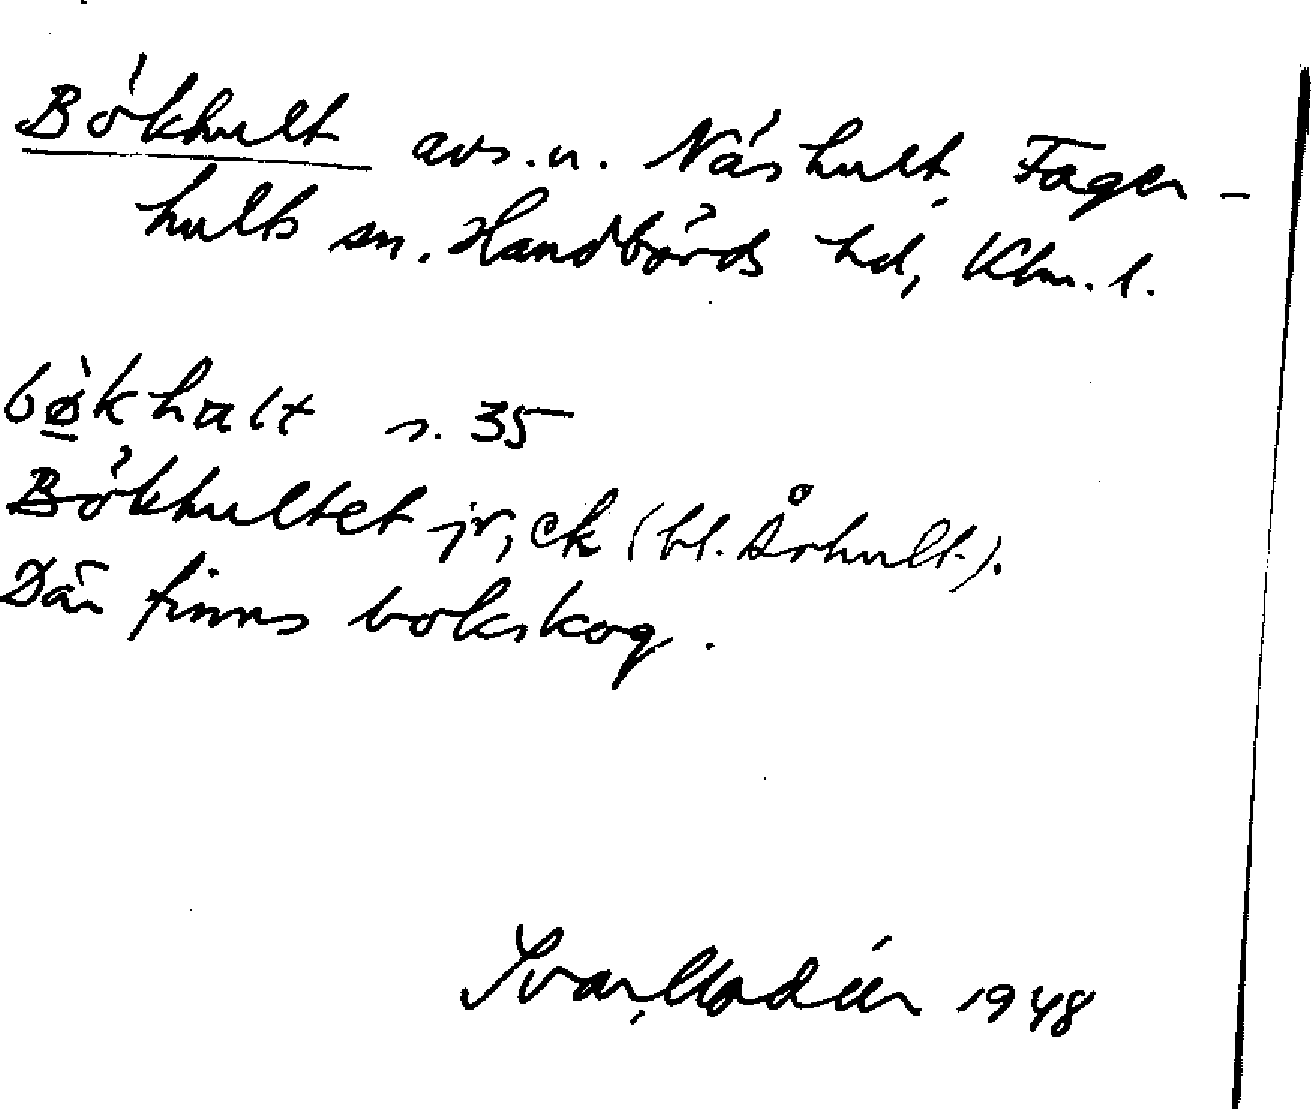 Bökhult avs.u. Näshult, Fager-
hults sn. Handbörds hd, Klm. l.
bø̀khult s. 35
Bökhultet jr, ek (bl. Århult).
Där finns bokskog.
Ivar Modéer 1948